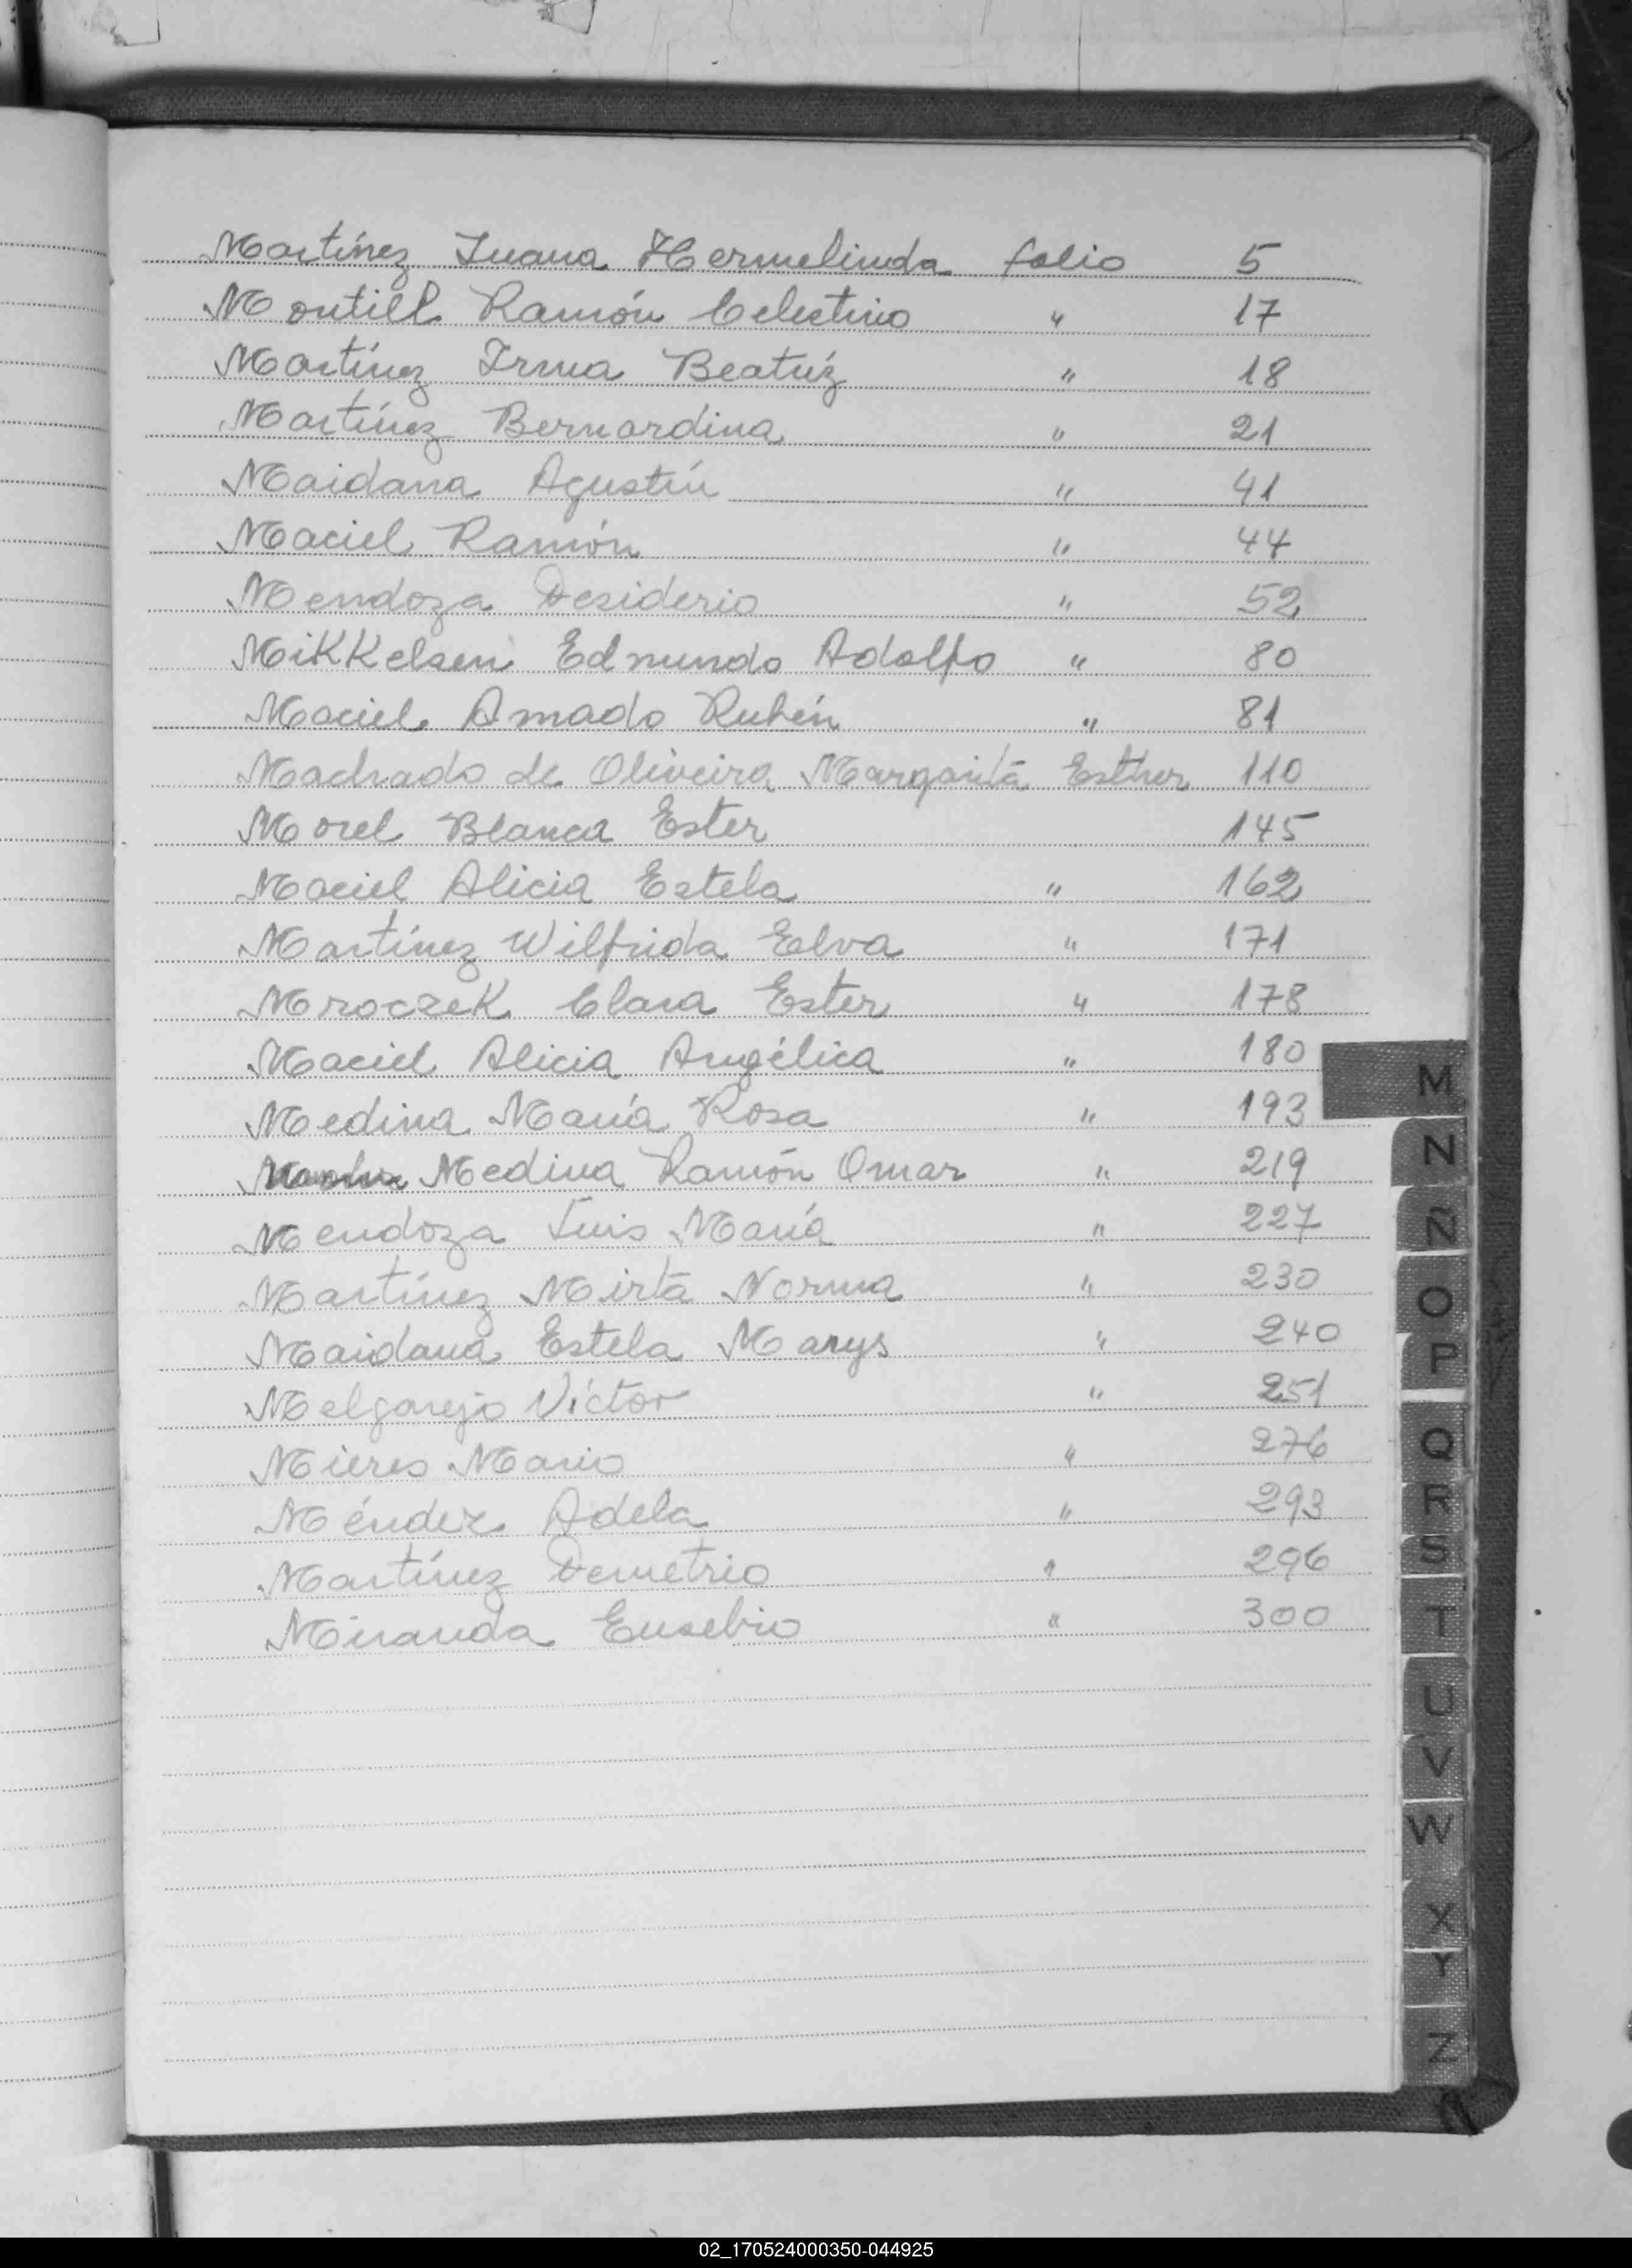 Martínez Juana Hermelinda folio 5
Montiell Ramón Celestino " 17
Martínez Irma Beatríz " 18
Martínez Bernardina " 21
Maidana Agustín " 41
Maciel Ramón " 44
Mendoza Desiderio " 52
Mikkelsen Edmundo Adolfo " 80
Maciel Amado Rubén " 81
Machado de Oliveira Margarita Esther 110
Morel Blanca Ester 145
Maciel Alicia Estela " 162
Martínez Wilfrida Elva " 171
Mroczek Clara Ester " 178
Maciel Alicia Angélica " 180
Medina María Rosa " 193
Medina Ramón Omar " 219
Mendoza Luis María " 227
Martínez Mirta Norma " 230
Maidana Estela Marys " 240
Melgarejo Víctor " 251
Mieres Mario " 276
Méndez Adela " 293
Martínez Demetrio " 296
Miranda Eusebio " 300
M
N
Ñ
O
P
Q
R
S
T
U
V
W
X
Y
Z
02_170524000350-044925